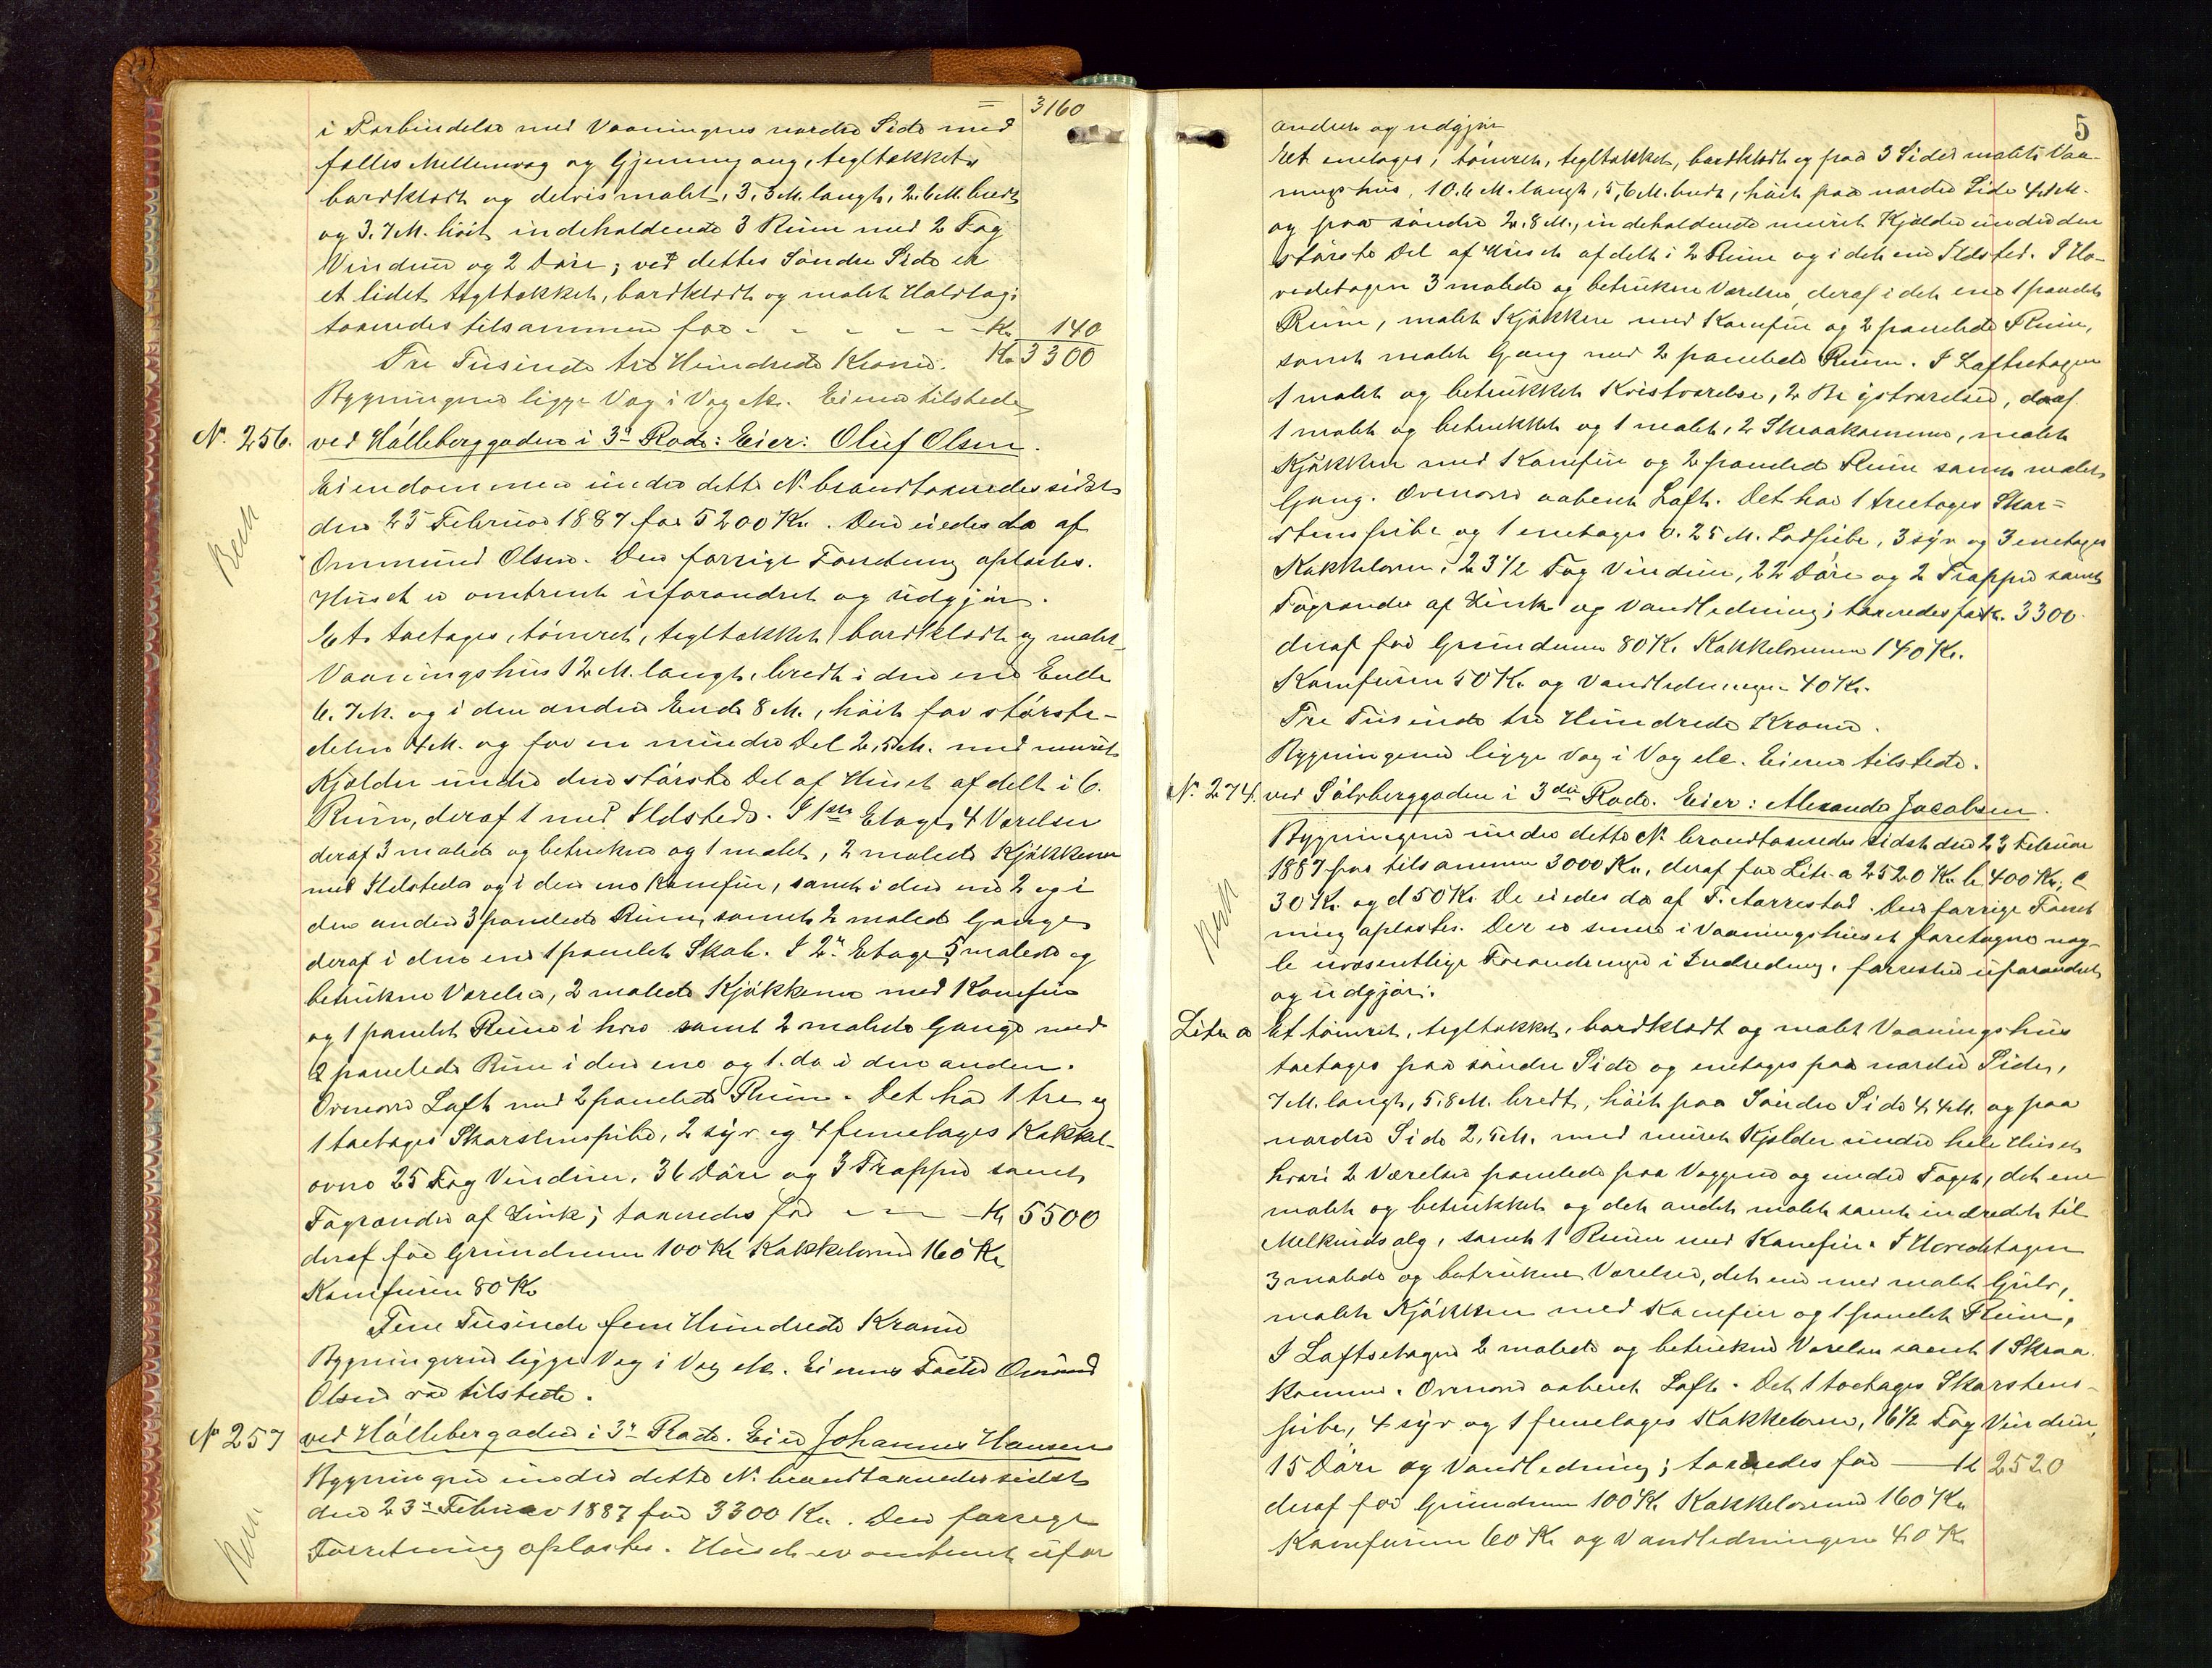 = 3160
i Forbindelse med Vaaningens nordre Side med
fælles Mellemvæg og Gjennemgang, tegltækket,
bordklædt og delvis malet, 3,3 M. langt, 2,6 M. bredt
og 3.7 M. høit, indeholdende 3 Rum med 2 Fag
Vinduer og 2 Døre; ved dettes Søndre Side er
et lidet tegltækket, bordklædt og malet Halvtag;
taxeredes tilsammen for - - - - - - Kr. 140
Tre Tusinde tre Hundrede Kroner. Kr. 3300
Bygningerne ligge Væg i Væg etc. Eieren tilstede
N. 256. ved Hølleberggaden i 3die Rode: Eier: Oluf Olsen.
Eiendommen under dette N. brandtaxeredes sidst
den 23 Februar 1887 for 5200 Kr. Den eiedes da af
Ommund Olsen. Den forrige Forretning oplæstes.
Huset er omtrent uforandret og udgjør.
Et toetages, tømret, tegltækket, bordklædt og malet
Vaaningshus 12 M. langt, bredt i den ene Ende
6.7 M. og i den anden Ende 8 M., høit for største-
delen 4 M. og for en mindre Del 2,5 M. med muret
Kjælder under den største Del af Huset afdelt i 6.
Rum, deraf 1 med Ildsted. I 1ste Etage 4 Værelser
deraf 3 malede og betrukne og 1 malet, 2 malede Kjøkkener
med Ildsteder og i den ene Komfur, samt i den ene 2 og i
den anden 3 panelede Rum, samt 2 malede Gange
deraf i den ene 1 panelet Skab. I 2den Etage 5 malede og
betrukne Værelser, 2 malede Kjøkkener med Komfur
og 1 panelet Rum i hver samt 2 malede Gange med
2 panelede Rum i den ene og 1. do i den anden.
Ovenover Loft med 2 panelede Rum. Det har 1 tre og
1 toetages Skorstenspibe, 2 syv og 4 femetages Kakkel-
ovne 25 Fag Vinduer, 36 Døre og 3 Trapper samt
Tagrender af Zink; taxeredes for - - - Kr. 5500
deraf for Grundmur 100 Kr. Kakkelovne 160 Kr.
Komfuren 80 Kr.
Fem Tusinde fem Hundrede Kroner
Bygningerne ligge Væg i Væg etc. Eierens Fader Omund
Olsen var tilstede.
N. 257 ved Høllebergaden i 3die Rode. Eier Johannes Hansen
Bygningen under dette N. brandtaxeredes sidst
den 23de Februar 1887 for 3300 Kr. Den forrige
Forretning oplæstes. Huset er omtrent ufor
5
andret og udgjør
Et enetages, tømret, tegltækket, bordklædt og paa 3 Sider malet Vaa-
ningshus, 10.6 M. langt, 5,6 M. bredt, høit paa nordre Side 4,1 M.
og paa søndre 2.8 M., indeholdende muret Kjælder under den
største Del af Huset afdelt i 2 Rum og i det ene Ildsted. I Ho-
vedetagen 3 malede og betrukne Værelser, deraf i det ene 1 panelet
Rum, malet Kjøkken med Komfur og 2 panelede Rum,
samt malet Gang med 2 panelede Rum. I Loftsetagen
1 malet og betrukket Kvistværelse, 2 Brystværelser, deraf
1 malet og betrukket og 1 malet, 2 Skraakammer, malet
Kjøkken med Komfur og 2 panelede Rum samt malet
Gang. Ovenover aabent Loft. Det har 1 treetages Skor=
stenspibe og 1 enetages 0.25 M. Lodpibe, 3 syv og 3 enetages
Kakkelovne, 23 1/2 Fag Vinduer, 22 Døre og 2 Trapper samt
Tagrender af Zink og Vandledning; taxeredes for Kr. 3300
deraf for Grundmur 80 Kr. Kakkelovnene 140 Kr.
Komfuren 50 Kr. og Vandledningen 40 Kr.
Tre Tusinde tre Hundrede Kroner.
Bygningerne ligge Væg i Væg etc. Eieren tilstede.
N. 274. ved Sølvberggaden i 3die Rode. Eier: Alexander Jacobsen.
Bygningerne under dette N. brandtaxeredes sidst den 23 Februar
1887 for tilsammen 3000 Kr., deraf for Litr. a 2520 Kr. b. 400 Kr., c
30 Kr. og d 50 Kr. De eiedes da af T. Aarrestad. Den forrige Forret
ning oplæstes. Der er senere i Vaaningshuset foretagne nog-
le uvæsentlige Forandringer i Indredning, forresten uforandret
og udgjør:
Litr. a Et tømret, tegltækket, bordklædt og malet Vaaningshus
toetages paa søndre Side og enetages paa nordre Side,
7 M. langt, 5.8 M. bredt, høit paa Søndre Side 4.4 M. og paa
nordre Side 2,5 M. med muret Kjelder under hele Huset
hvori 2 Værelser panelede paa Væggene og under Taget, det ene
malet og betrukket og det andet malet samt indredet til
Melkeudsalg, samt 1 Rum med Komfur. I Hovedetagen
3 malede og betrukne Værelser, det ene med malet Gulv,
malet Kjøkken med Komfur og 1 panelet Rum,
I Loftsetagen 2 malede og betrukne Værelser samt 1 Skraa
kammer. Ovenover aabent Loft. Det 1 toetages Skorstens-
pibe, 4 syv og 1 femetages Kakkelovn, 16 1/2 Fag Vinduer,
15 Døre og Vandledning; taxeredes for — Kr 2520
deraf for Grundmur 100 Kr. Kakkelovnene 160 Kr.
Komfuren 60 Kr. og Vandledningen 40 Kr.